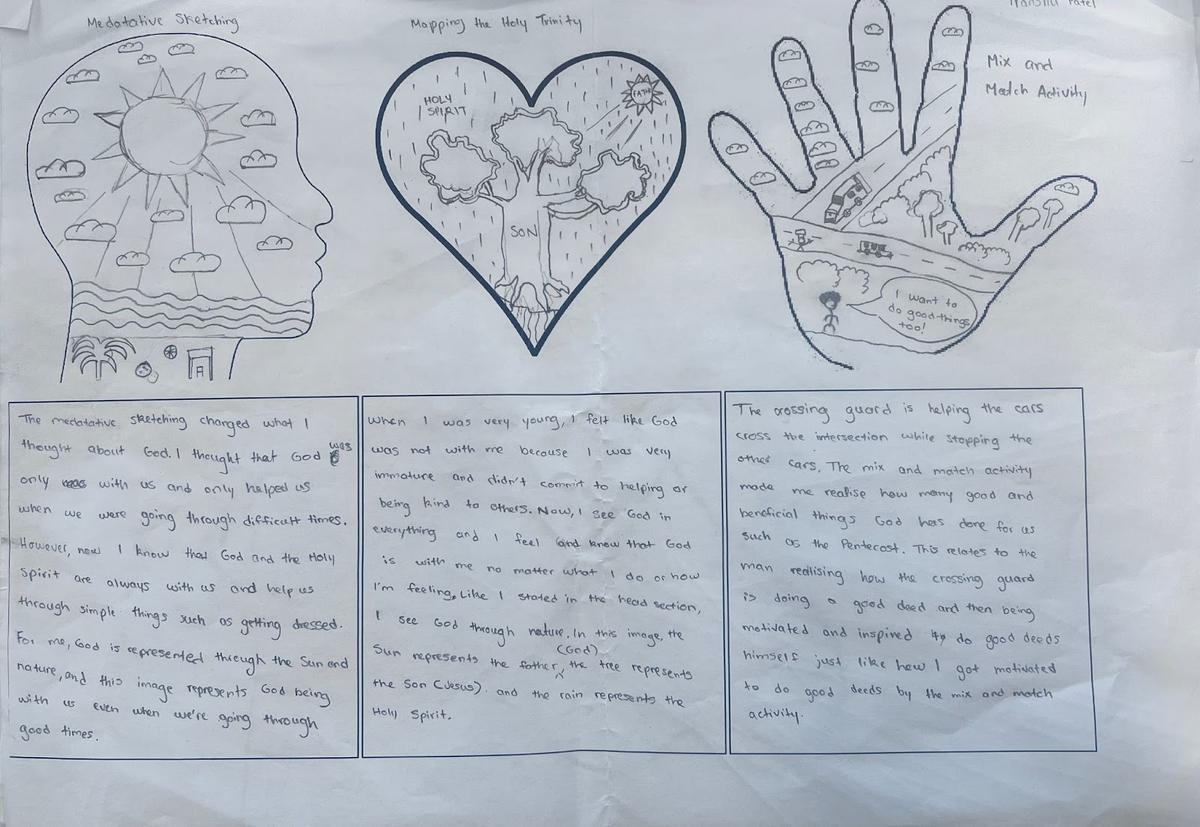 Medatative Sketching
Mapping the Holy Trinity
Patel
Mix and
Match Activity
HOLY
SPIRIT
FATHER
SON
I want to
do good things
too!
The medatative sketching changed what I
thought about God. I thought that God was
only with us and only helped us
when we were going through difficult times.
However, now I know that God and the Holy
Spirit are always with us and help us
through simple things such as getting dressed.
For me, God is represented through the Sun and
nature, and this image represents God being
with us even when we're going through
good times.
When I was very young, I felt like God
was not with me because I was very
immature and didn't commit to helping or
being kind to others. Now, I see God in
everything and I feel and know that God
is with me no matter what I do or how
I'm feeling. Like I stated in the head section,
I see God through nature. In this image, the
Sun represents the father (God), the tree represents
the Son (Jesus). and the rain represents the
Holy Spirit.
The crossing guard is helping the cars
cross the intersection while stopping the
other cars. The mix and match activity
made me realise how many good and
beneficial things God has done for us
such as the Pentecost. This relates to the
man realising how the crossing guard
is doing a good deed and then being
motivated and inspired to do good deeds
himself just like how I got motivated
to do good deeds by the mix and match
activity.